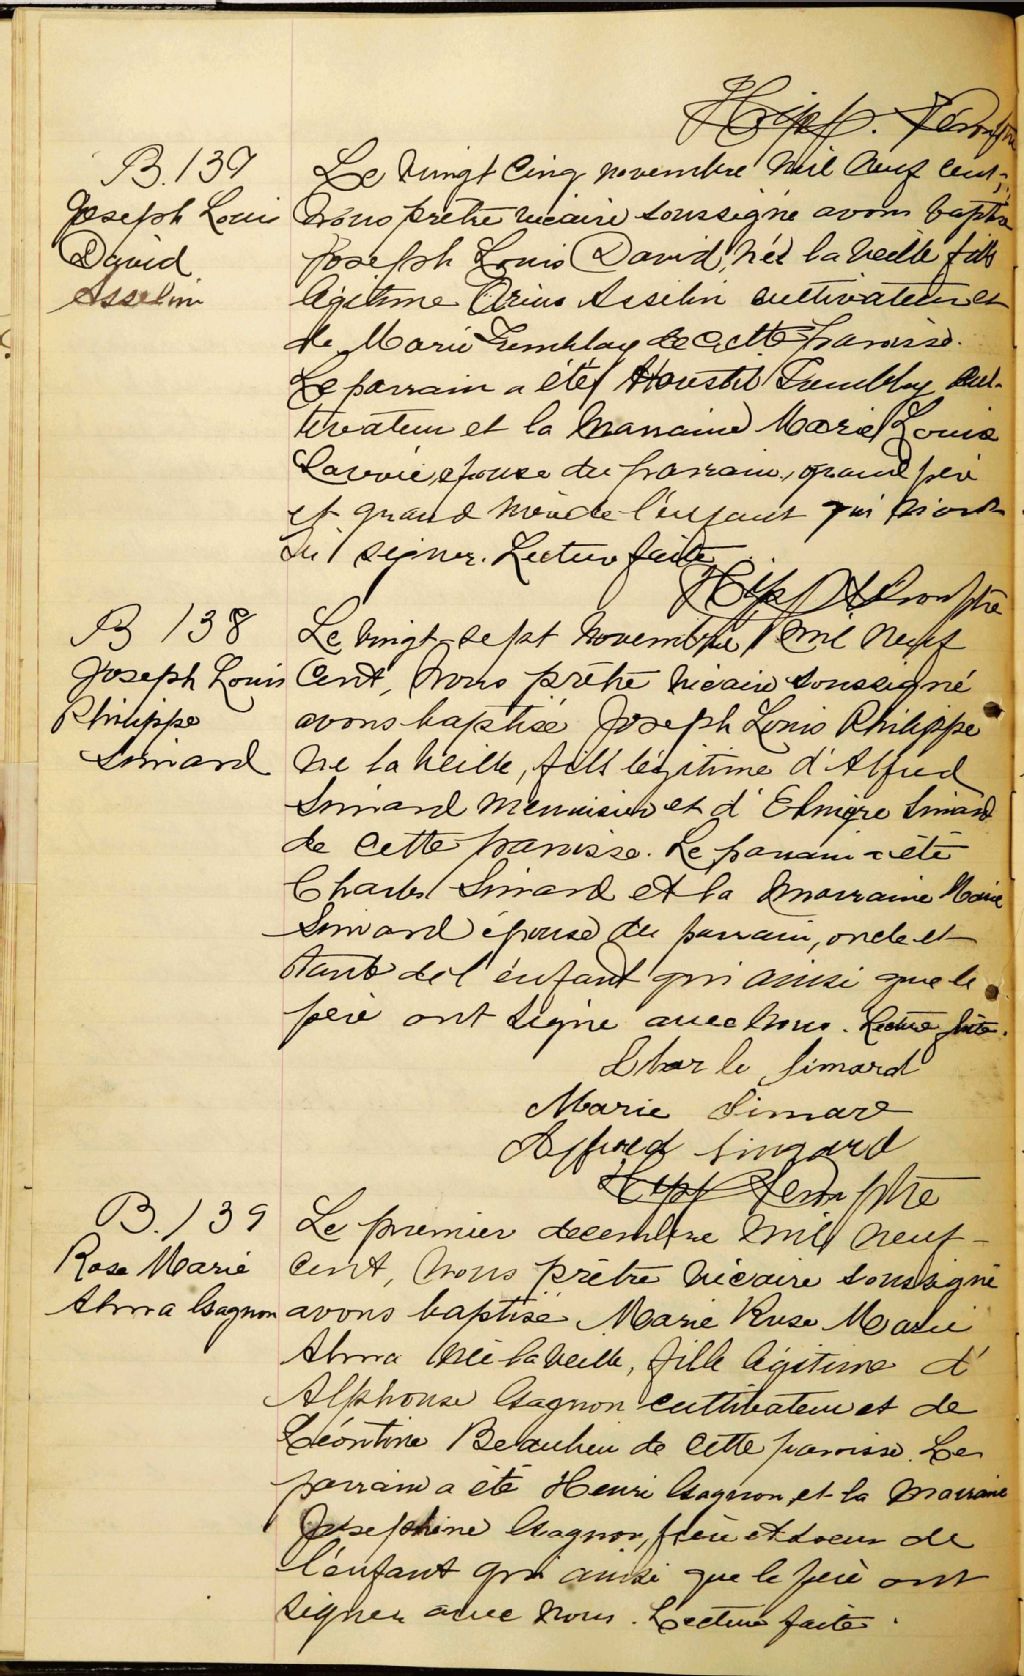 Hipp.
B. 137
Joseph Louis
David
Asselin
Le vingt cinq novembre mil neuf cent,
Nous prêtre vicaire soussigné avons baptisé
Joseph Louis David, né la veille fils
légitime Arius Asselin cultivateur et
de Marie Tremblay de cette paroisse.
Le parrain a été Tremblay cul-
tivateur et la marraine Marie Louise
Savoie, épouse du parrain, grand père
et grand mère de l'enfant qui n'ont
su signer. Lecture faite
Hipp ptre
B 138
Joseph Louis
Philippe
Simard
Le vingt-sept novembre mil neuf
cent, Nous prêtre vicaire soussigné
avons baptisé Joseph Louis Philippe
né la veille, fils légitime d'Alfred
Simard menuisier et d'Elmire Simard
de cette paroisse. Le parrain a été
Charles Simard et la marraine Marie
Simard épouse du parrain, oncle et
tante de l'enfant qui ainsi que le
père ont signé avec nous. Lecture faite.
Charle Simard
Marie Simard
Alfred Simard
Hipp ptre
B. 139
Rose Marie
Alma Gagnon
Le premier decembre mil neuf-
cent, Nous prêtre vicaire soussigné
avons baptisé Marie Rose Marie
Alma née la veille, fille légitime d'
Alphonse Gagnon cultivateur et de
Léontine Beaulieu de cette paroisse. Le
parrain a été Henri Gagnon et la marraine
Josephine Gagnon, frère et soeur de
l'enfant qui ainsi que le père ont
signer avec nous. Lecture faite.